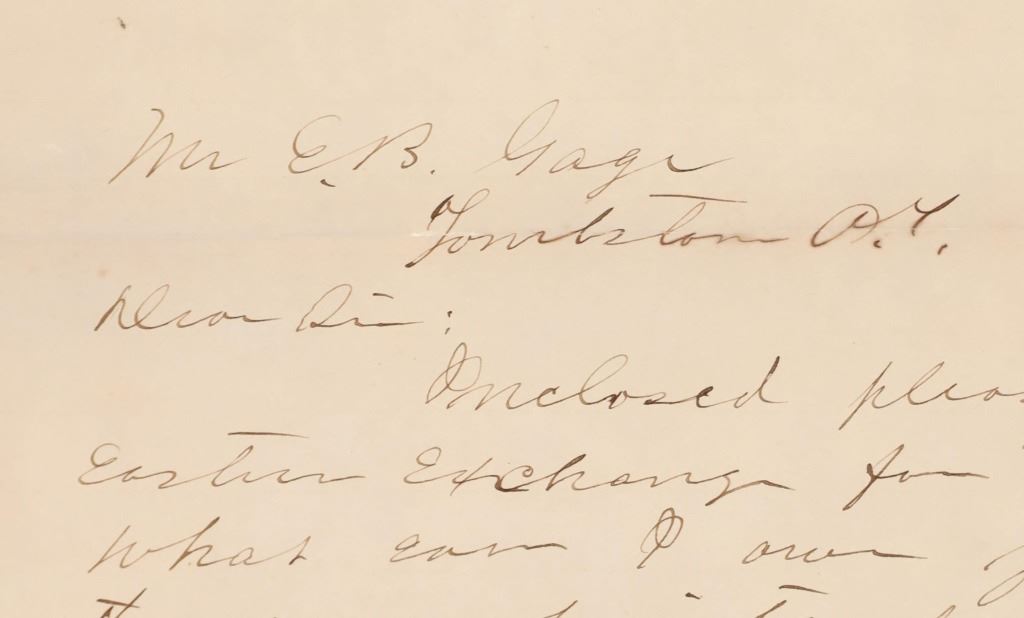 Mr E. B. Gage
Tombstone A.T.
Dear Sir:
Inclosed pleas
Eastern Exchange for
what can I owe